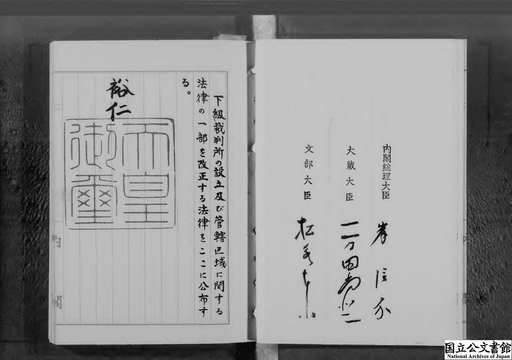 下級裁判所の設立及び管轄区域に関する
法律の一部を改正する法律をここに公布す
る。
裕仁
天皇
御璽
内閣総理大臣
岸信介
大蔵大臣
一万田尚登
文部大臣
国立公文書館
National Archives of Japan